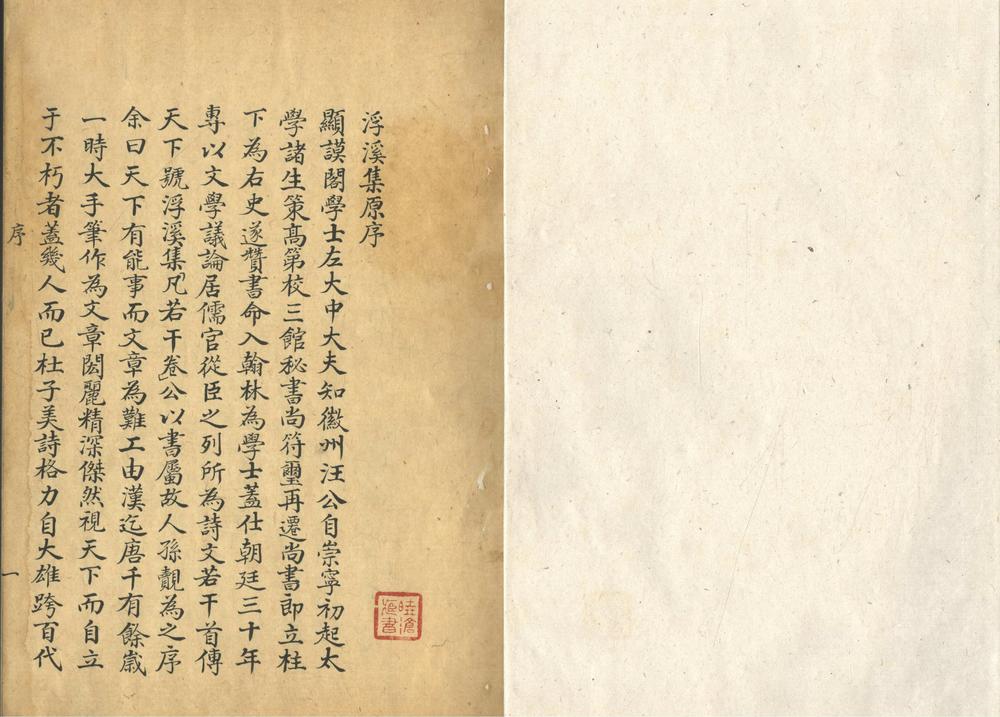 浮溪集原序
顯謨閣學士左大中大夫知徽州汪公自崇寧初起太
學諸生策高第校三館秘書尚符璽再遷尚書即立柱
下為右史遂贊書命入翰林為學士蓋仕朝廷三十年
專以文學議論居儒官從臣之列所為詩文若干首傳
天下號浮溪集凡若干卷公以書屬故人孫覿為之序
余曰天下有能事而文章為難工由漢迄唐千有餘嵗
一時大手筆作為文章閎麗精深傑然視天下而自立
于不朽者蓋幾人而已杜子美詩格力自大雄跨百代
序
一